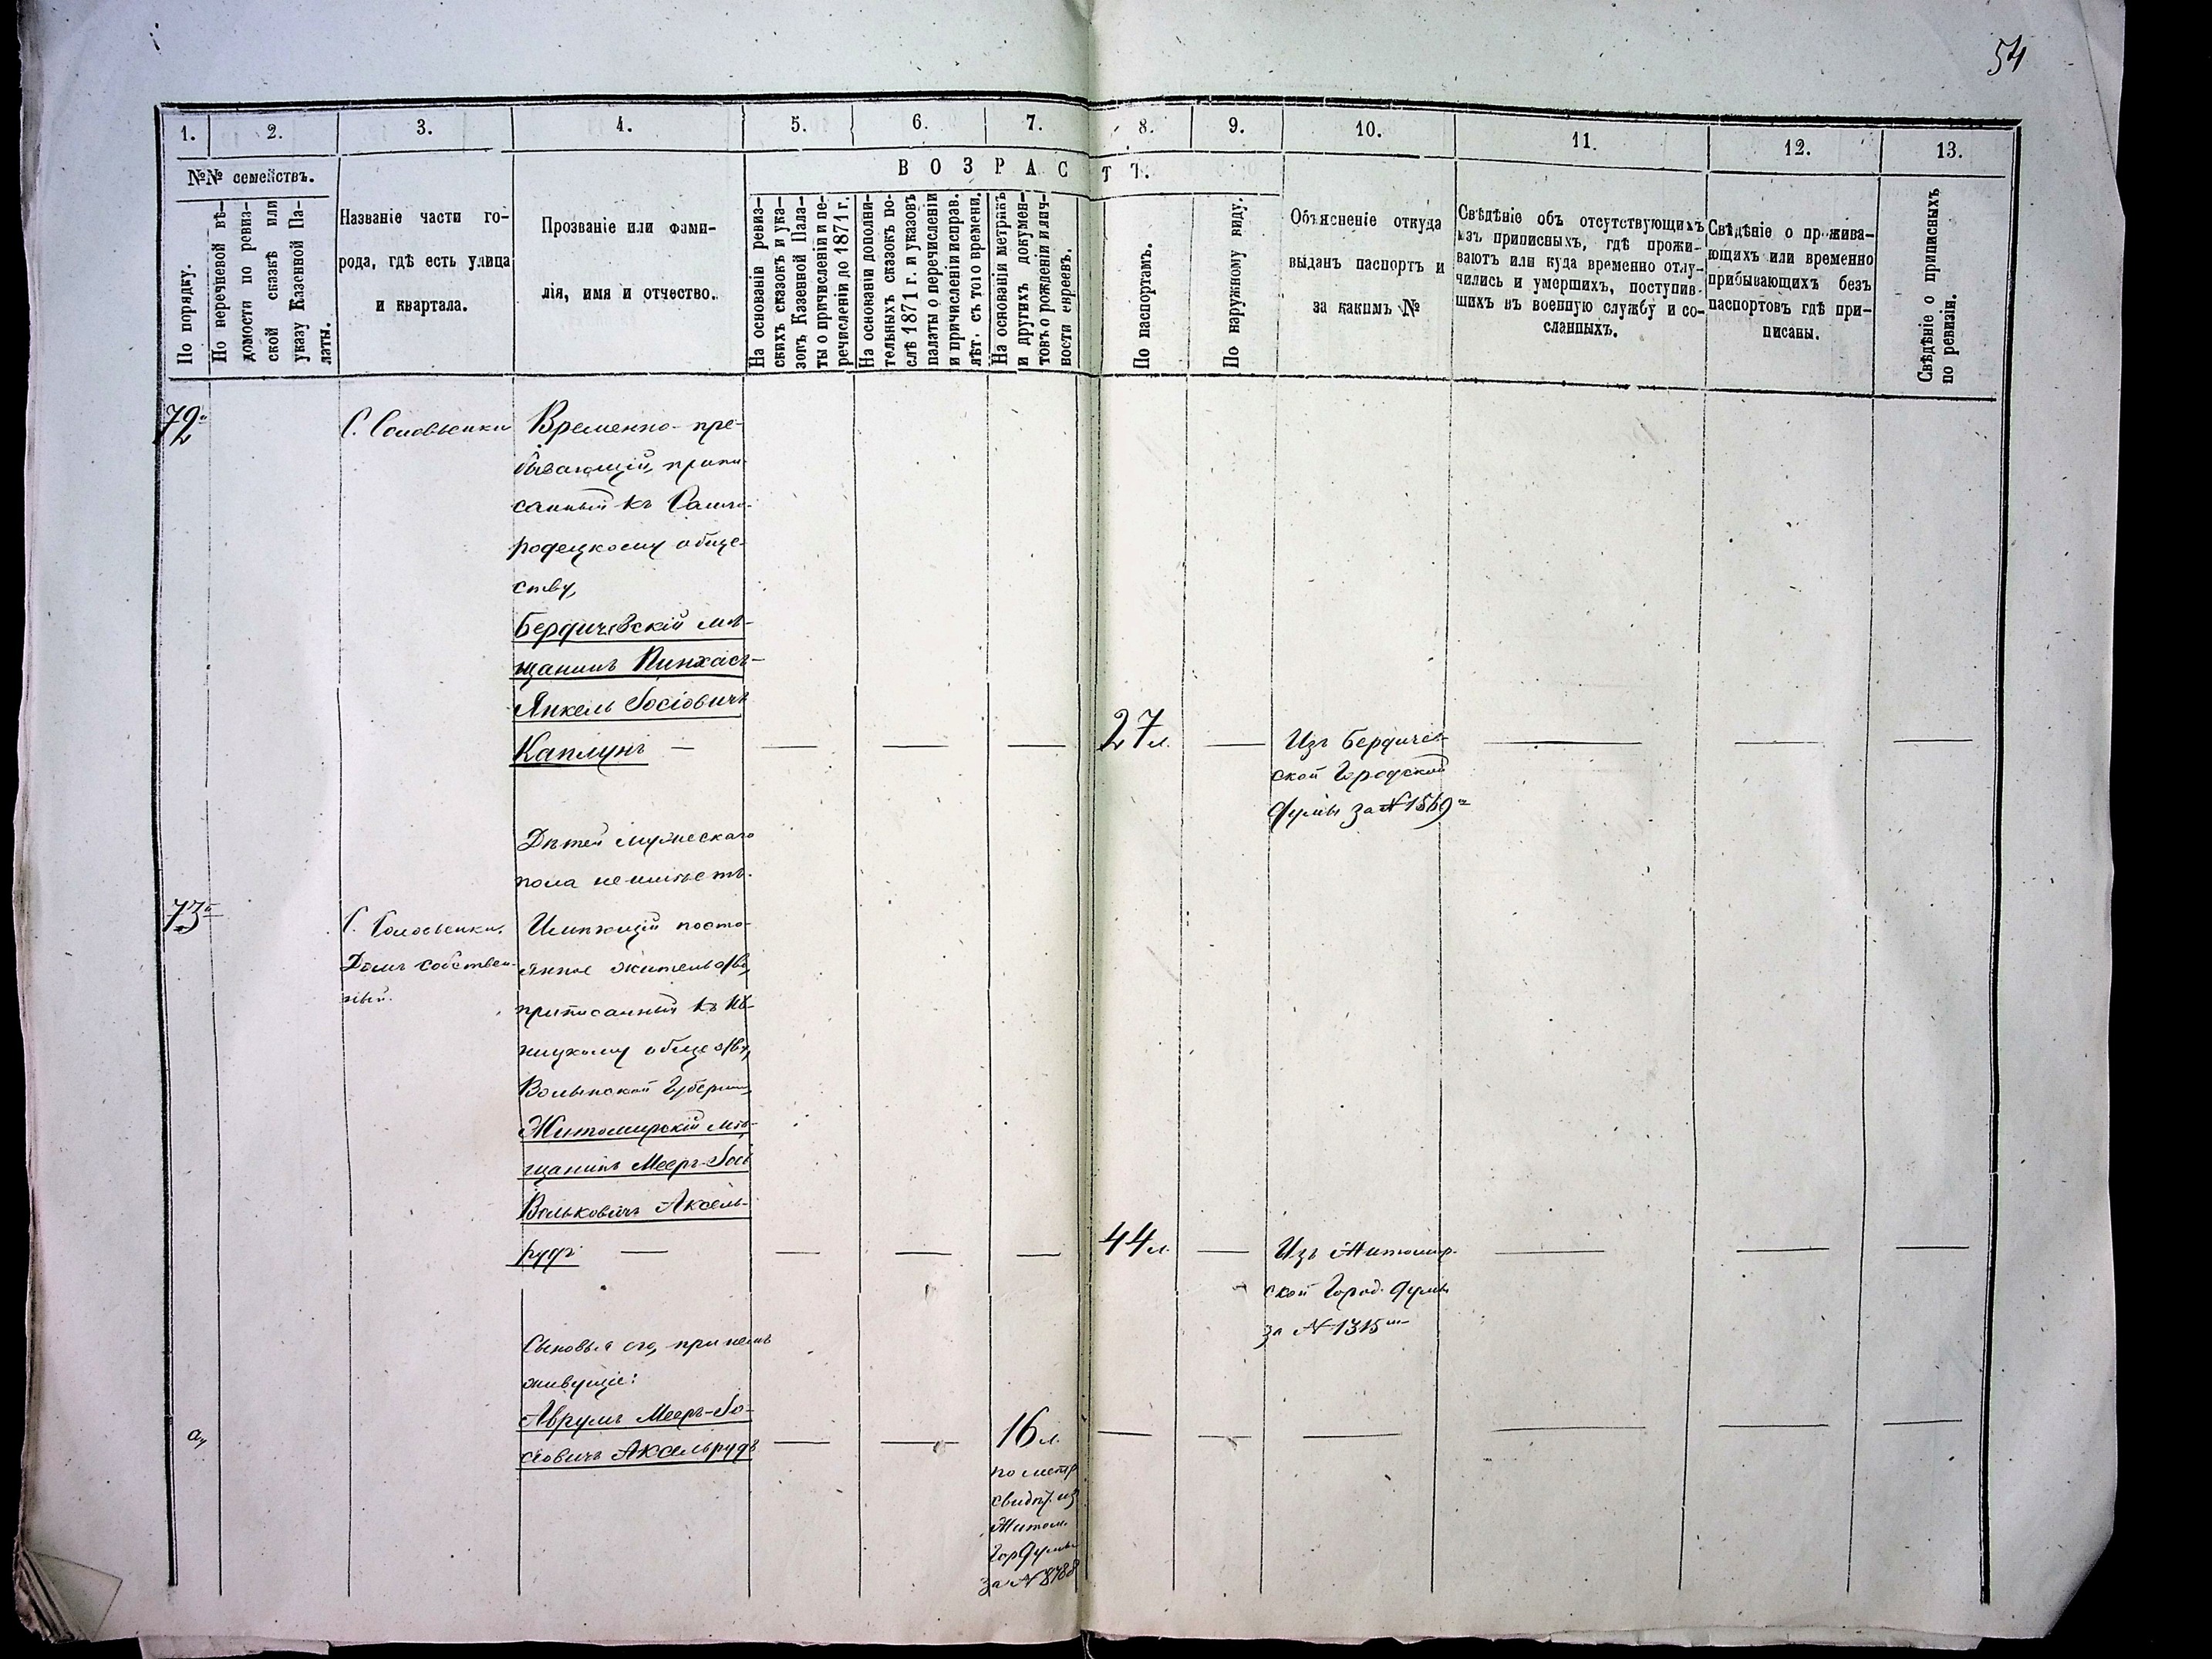 54
1.
2.
3.
4.
5.
6.
7.
8.
9.
10.
11.
12.
13.
№№ семействъ.
ВОЗРАСТЪ.
По порядку.
По перечневой вѣ-
домости по ревиз-
ской сказкѣ или
указу Казенной Па-
латы.
Названіе части го-
рода, гдѣ есть улица
и квартала.
Прозваніе или фами-
лія, имя и отчество.
На основаніи ревиз-
скихъ сказокъ и ука-
зовъ Казенной Пала-
ты о причисленіи и пе-
речисленіи до 1871 г.
На основаніи дополни-
тельныхъ сказокъ по-
слѣ 1871 г. и указовъ
палаты о перечисленіи
и причисленіи исправ.
лѣт. съ того времени.
На основаніи метрикъ
и другихъ докумен-
товъ о рожденіи и лич-
ности евреевъ.
По паспортамъ.
По наружному виду.
Объясненіе откуда
выданъ паспортъ и
за какимъ №
Свѣдѣніе объ отсутствующихъ
изъ приписныхъ, гдѣ прожи-
ваютъ или куда временно отлу-
чились и умершихъ, поступив-
шихъ въ военную службу и со-
сланныхъ.
Свѣдѣніе о прожива-
ющихъ или временно
прибывающихъ безъ
паспортовъ гдѣ при-
писаны.
Свѣдѣніе о приписныхъ
по ревизіи.
72
С. Соловьевки
Временно-пре-
бывающій, припи-
санный къ
родецкому обще-
ству,
Бердичевскій мѣ-
щанинъ Пинхасъ-
Янкель Іосіовичъ
Каплунъ — — — — 27 л. — Изъ Бердичев- — — —
ской Городской
Думы за № 1569
Дѣтей мужескаго
пола не имѣетъ.
73
С. Соловьевки.
Домъ собствен-
ный.
Имѣющій посто-
янное жительство,
приписанный къ
обществу,
Волынской Губерніи,
Житомирскій мѣ-
щанинъ Мееръ-Іось
Вольковичъ Аксель-
рудъ — — — — 44 л. — Изъ Житомир- — — —
ской Город. Думы
за № 1315
Сыновья его, при немъ
живущіе:
а, Аврумъ Мееръ-Іо-
сіовичъ Аксельрудъ — — 16 л. — — — — — —
по метр.
свидѣт. изъ
Житом.
Гор Думы
за № 8788